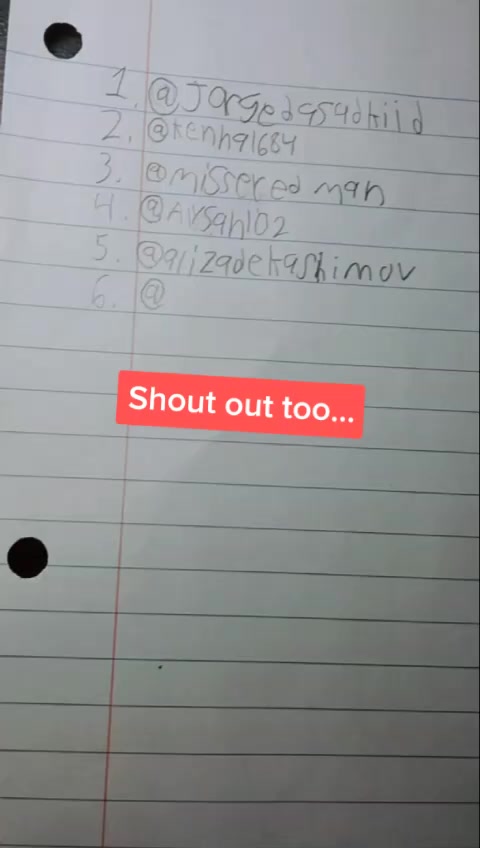 1. @Jorgedasadkiid
2. @Kenh91684
3. @missered man
4. @Aysan102
5. @alizadehashimov
6. @
Shout out too...